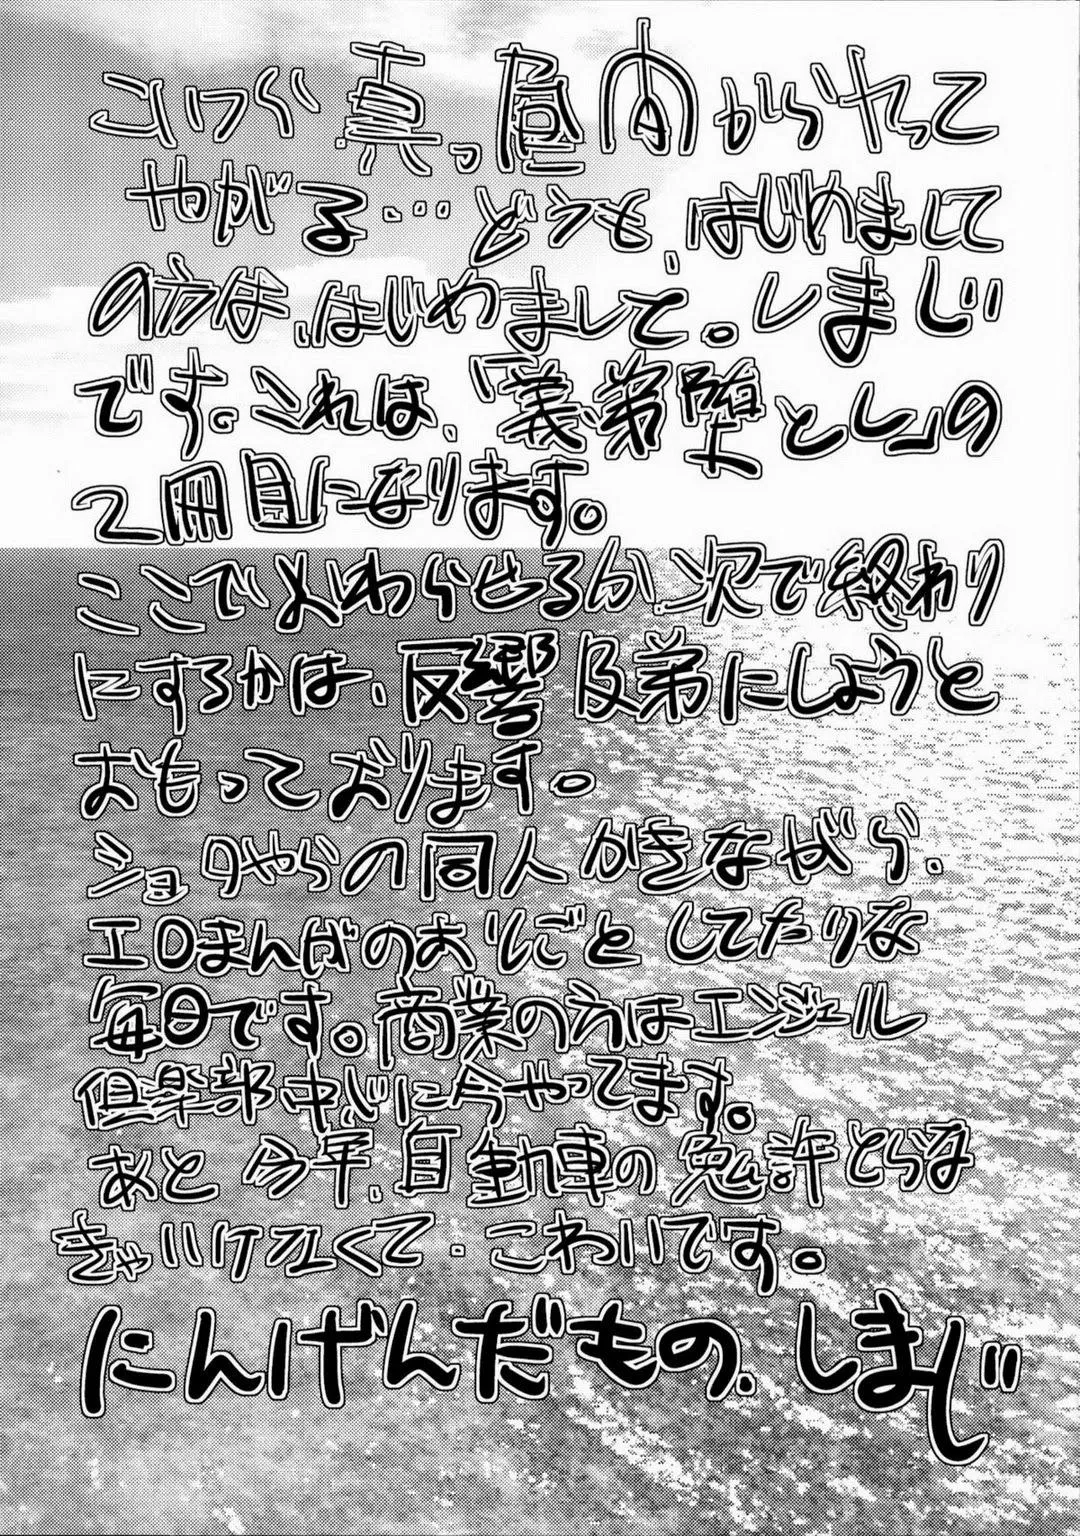 こいつら真っ昼間からヤって
やがる…どうも、はじめまして
の方は、はじめまして。しまじ
です。これは、「義弟堕とし」の
2冊目になります。
ここでおわらせるか次で終わり
にするかは、反響 及第にしようと
おもっております。
ショタやらの同人かきながら、
エロまんがのおしごとしてたりな
毎日です。商業の方はエンジェル
倶楽部中心に今やってます。
あと今年、自動車の免許とらな
きゃいけなくて・こわいです。
にんげんだもの、しまじ